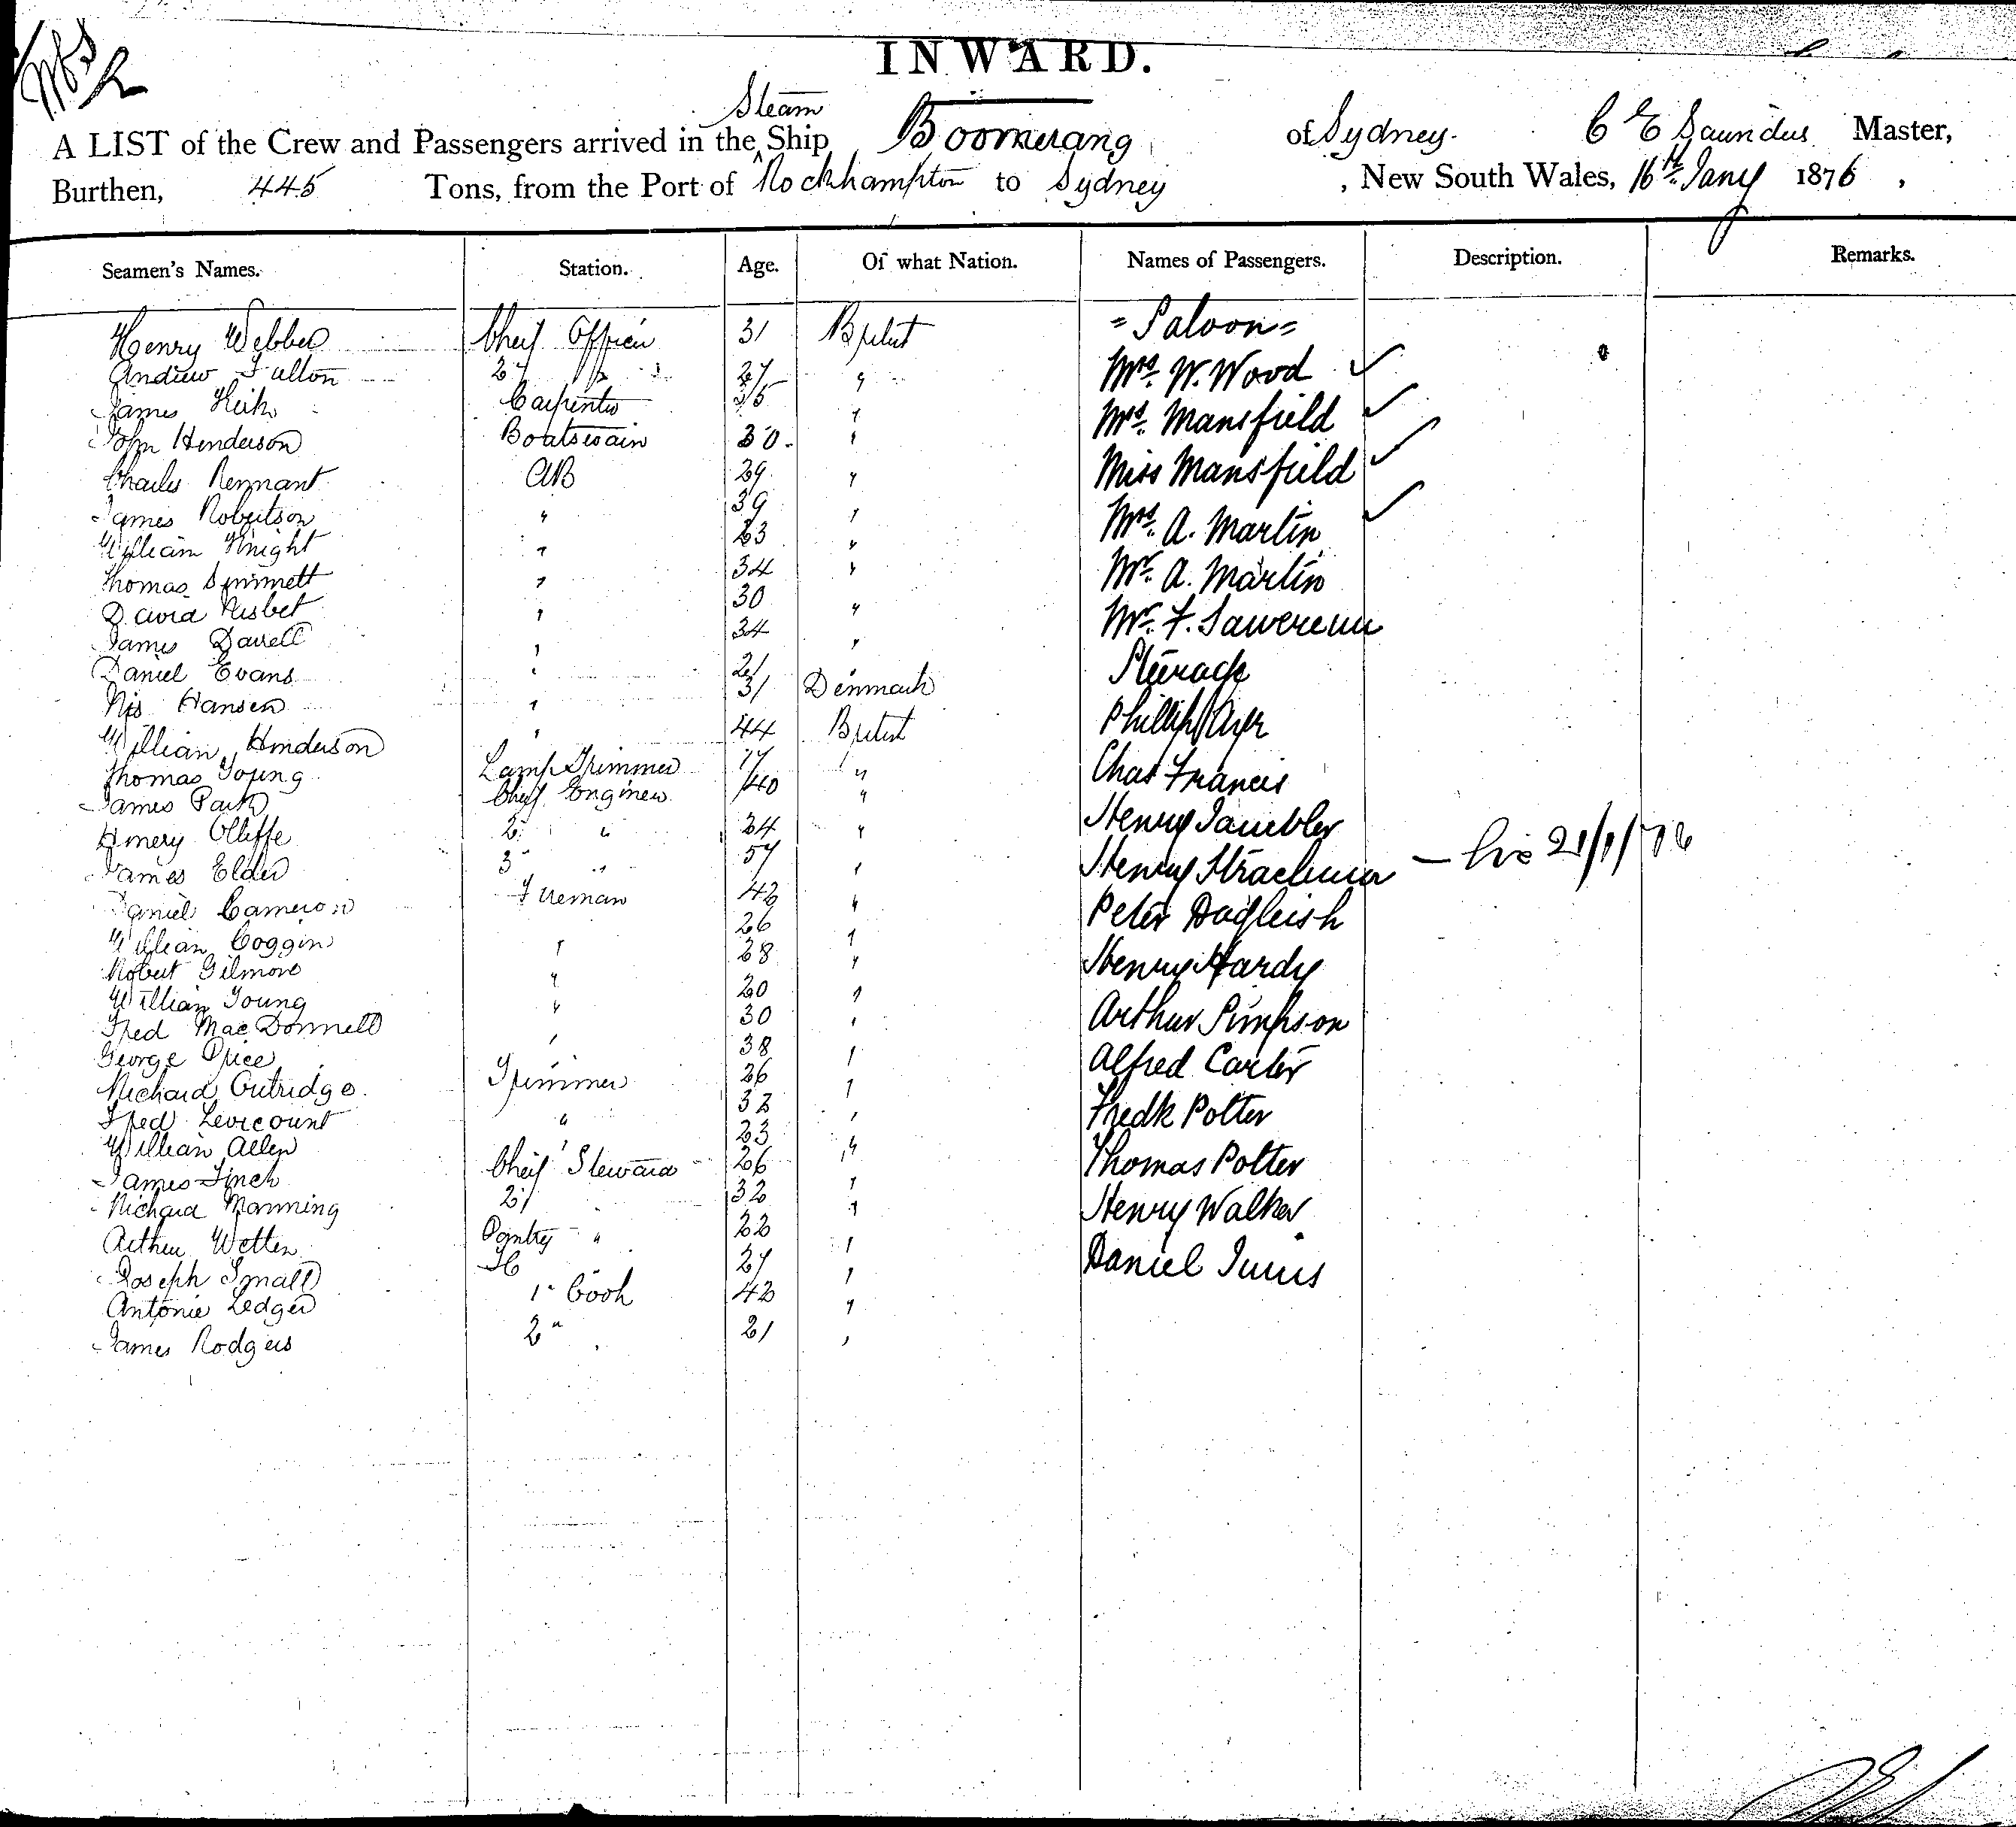 INWARD.
Steam
A LIST of the Crew and Passengers arrived in the ^ Ship Boomerang of Sydney. C E Saunders Master,
Burthen, 445 Tons, from the Port of Rockhampton to Sydney, New South Wales, 16th Jany 1876,
Seamen's Names. Station. Age. Of what Nation. Names of Passengers. Description. Remarks.
Henry Webber Cheif Officer 31 British
Andrew Fullon 2d " 27 "
James Keith Carpenter 35 "
John Henderson Boatswain 30. "
Charles Rennant AB 29 "
James Robertson " 39 "
William Knight " 23 "
Thomas Simmett " 34 "
David Nisbet " 30 "
James Darrell " 34 "
Daniel Evans " 21 "
Nis Hansen " 31 Denmark
William Henderson " 44 British
Thomas Young Lamp Trimmer 17 "
James Park Cheif Engineer 40 "
Emery Olliffe 2d " 24 "
James Elder 3 " 57 "
Daniel Cameron Fireman 42 "
William Coggin " 26 "
Robert Gilmore " 28 "
William Young " 20 "
Fred MacDonnell " 30 "
George Price " 38 "
Richard Outridge. Trimmer 26 "
Fred Levicount " 32 "
William Allen " 23 "
James Finch Cheif Steward 26 "
Richard Manning 2d " 32 "
Arthur Wotten Pantry " 22 "
Joseph Small 27 "
Antonie Ledger 1st Cook 42 "
James Rodgers 2d " 21 "
= Saloon =
Mrs. W. Wood ✓
Mrs. Mansfield ✓
Miss Mansfield ✓
Mrs. A. Martin ✓
Mr. A. Martin
Mr. F.
Steerage
Phillip
Chas Francis
Henry
Henry Strachan — 21/1/76
Peter Dagleish
Henry Hardy
Arthur Simpson
Alfred Carter
Fredk Potter
Thomas Potter
Henry Walker
Daniel